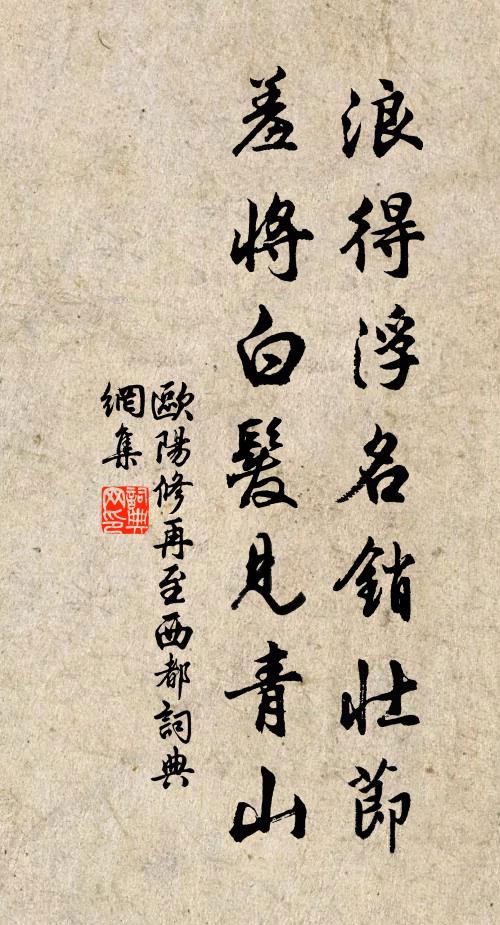 浪得浮名銷壯節
羞將白髮見青山
歐陽修再至西都詞典
網集
詞典
网印